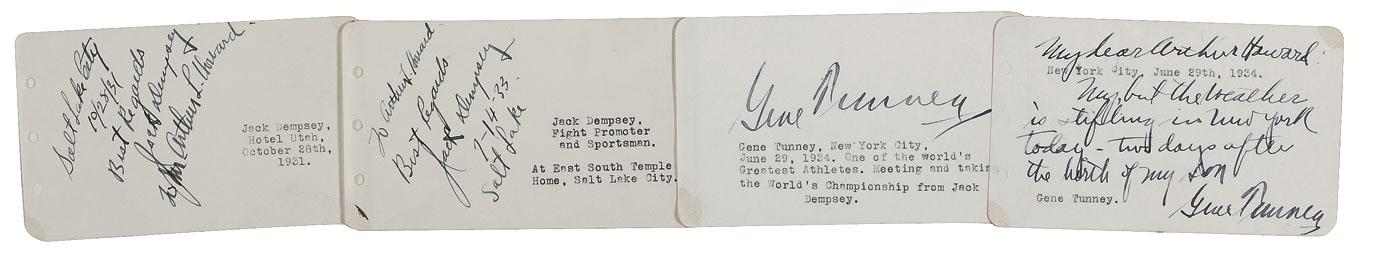 Salt Lake City
10/28/31
Best Regards
Jack Dempsey
To Mr Arthur L Howard
Jack Dempsey,
Hotel Utah,
October 28th,
1931.
To Arthur Howard
Best Regards
Jack Dempsey
7-14-33
Salt Lake
Jack Dempsey,
Fight Promoter
and Sportsman.
At East South Temple
Home, Salt Lake City.
Gene Tunney
Gene Tunney, New York City,
June 29, 1934. One of the world's
Greatest Athletes. Meeting and takin
the World's Championship from Jack
Dempsey.
My dear Arthur Howard:
New York City, June 29th, 1934.
My, but the weather
is stifling in New York
today - two days after
the birth of my son
Gene Tunney.
Gene Tunney